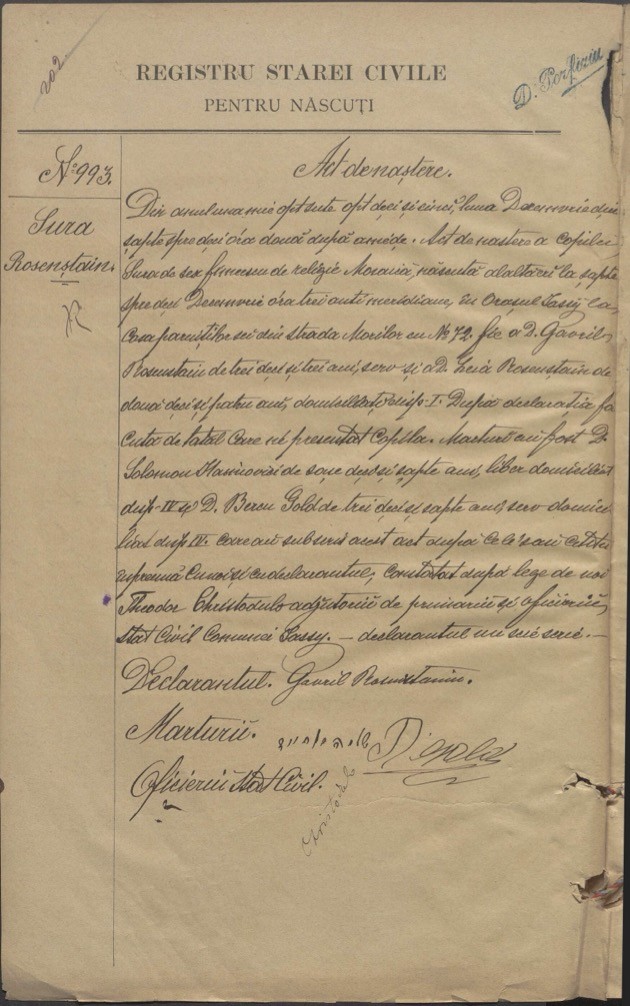 202
D. Porfiriu
REGISTRU STAREI CIVILE
PENTRU NĂSCUȚI
No 993.
Sura
Rosenștain
Act de naștere.
Din anul una mie opt sute opt deci și cinci, luna Decemvrie din
șapte spre deci óra două după amede. Act de nastere a copilului
Sura de sex femeesc de religie Mosaică, născută alaltăeri la șapte
spre deci Decemvrie óra trei anti meridiane, în Orașul Iassy la
casa parinților sei din strada Morilor cu No 72. fie a D. Gavril
Rosenstain de trei deci și trei ani, serv și a D. Leia Rosenstain de
două deci și patru ani, domiciliați disp. I. Dupa declarația fa
cuta de tatal care ne presentat Copila. Marturi au fost D.
Solomon Haimovici de șase deci și sapte ani, liber domiciliat
disp. IV și D. Bercu Gold de trei deci și sapte ani, serv domici
liat disp. IV. care au subscris acest act dupa ce li sau cetitu
inpreună cu noi și cu declarantul, Constatat dupa lege de noi
Theodor Christodulo adjutoriu de primariu și oficieriu
stat Civil Comunei Iassy. — declarantul nu scie serie. —
Declarantul. Gavril Rosenstain.
Marturii.
D. Gold
Oficierul Stat Civil.